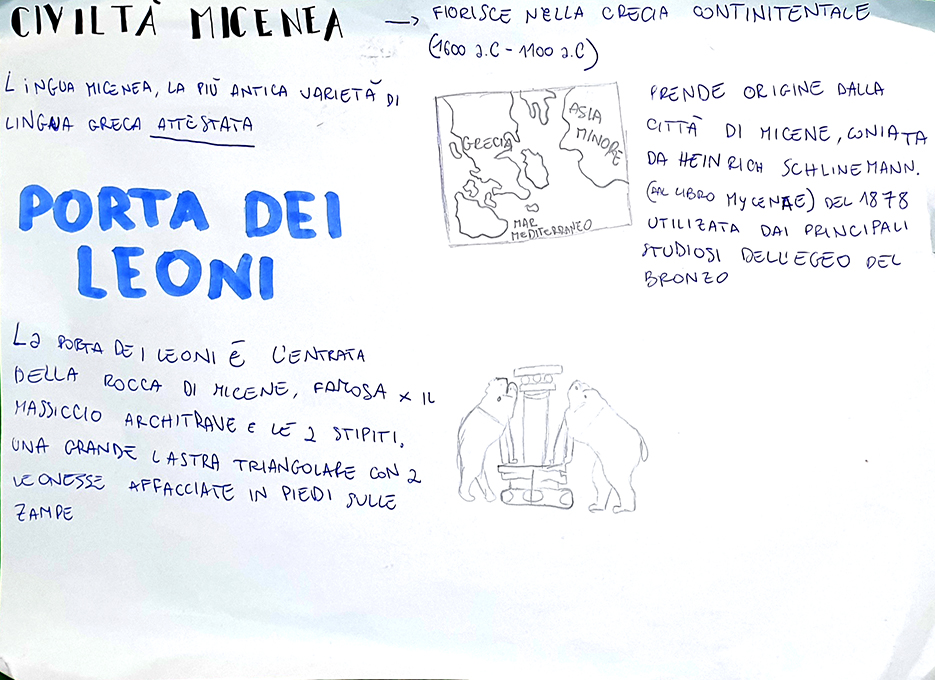 CIVILTÀ MICENEA → FIORISCE NELLA GRECIA CONTINITENTALE
(1600 a.C - 1100 a.C)
LINGUA MICENEA, LA PIÙ ANTICA VARIETÀ DI
LINGUA GRECA ATTESTATA
GRECIA
ASIA
MINORE
MAR
MEDITERRANEO
PRENDE ORIGINE DALLA
CITTÀ DI MICENE, CONIATA
DA HEINRICH SCHLINEMANN.
(DAL LIBRO MYCENAE) DEL 1878
UTILIZATA DAI PRINCIPALI
STUDIOSI DELL'EGEO DEL
BRONZO
PORTA DEI
LEONI
La PORTA DEI LEONI È L'ENTRATA
DELLA ROCCA DI MICENE, FAMOSA x IL
MASSICCIO ARCHITRAVE E LE 2 STIPITI,
UNA GRANDE LASTRA TRIANGOLARE CON 2
LEONESSE AFFACCIATE IN PIEDI SULLE
ZAMPE